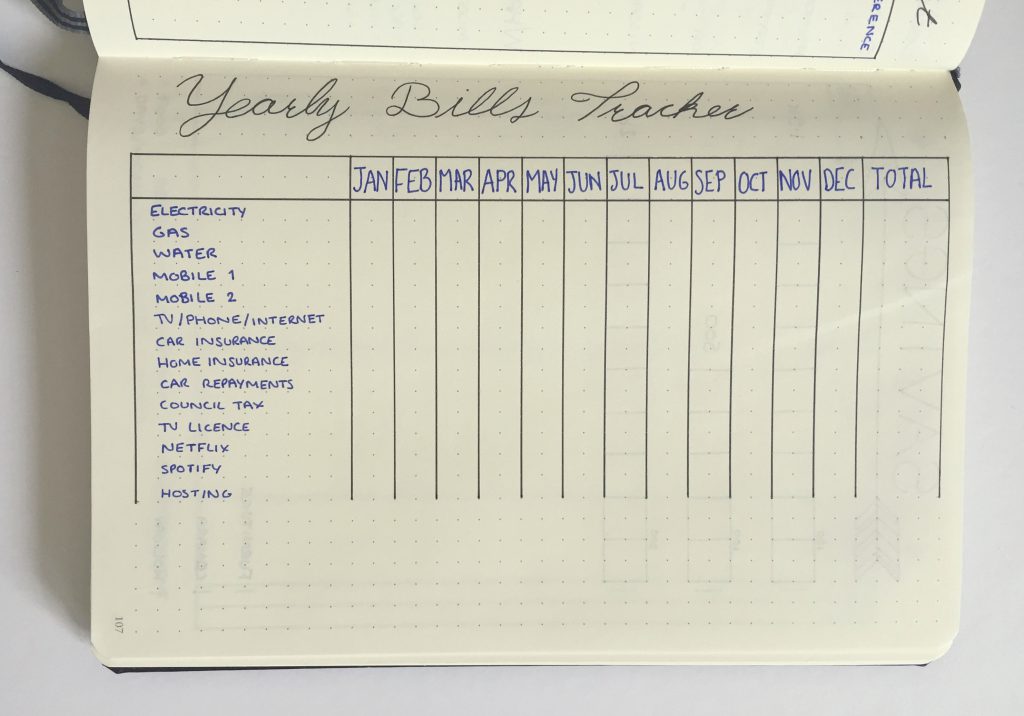 ERENCE
Yearly Bills Tracker
JAN FEB MAR APR MAY JUN JUL AUG SEP OCT NOV DEC TOTAL
ELECTRICITY
GAS
WATER
MOBILE 1
MOBILE 2
TV/PHONE/INTERNET
CAR INSURANCE
HOME INSURANCE
CAR REPAYMENTS
COUNCIL TAX
TV LICENCE
NETFLIX
SPOTIFY
HOSTING
107